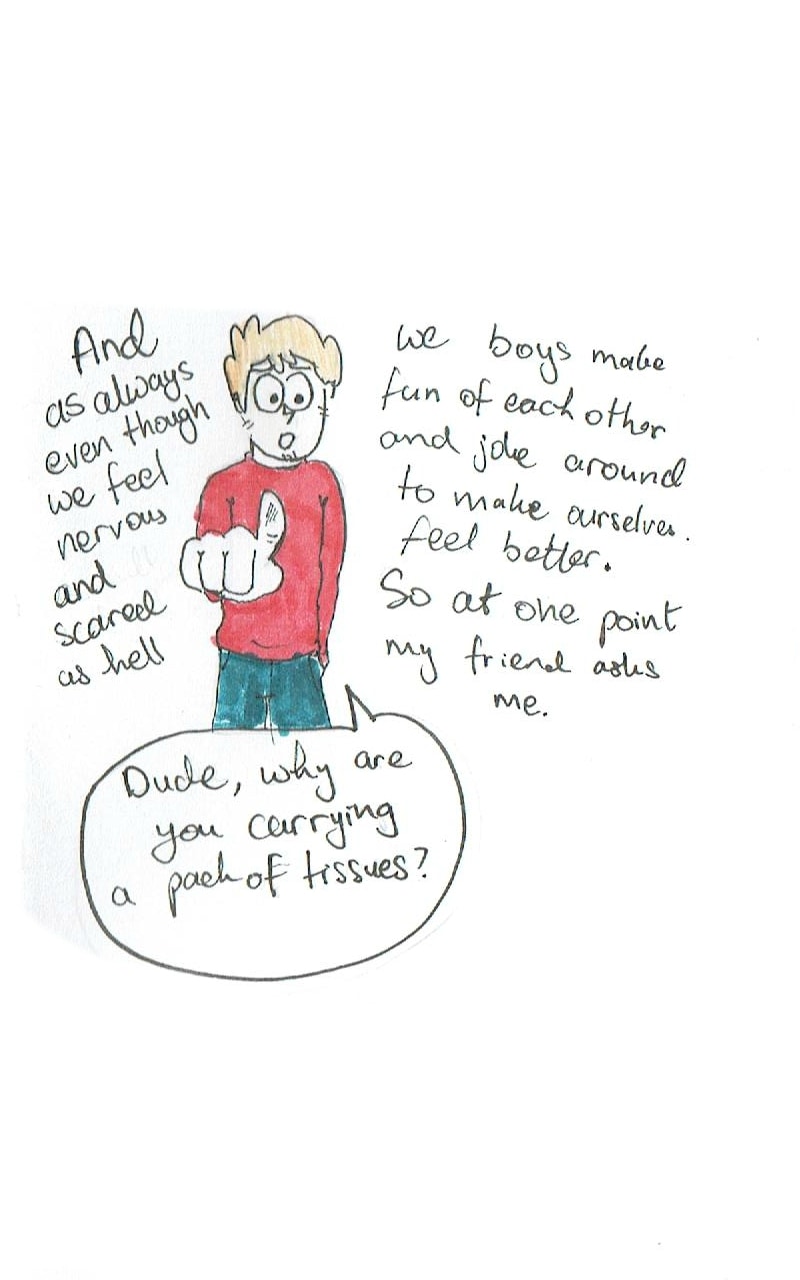 And
as always
even though
we feel
nervous
and
scared
as hell
we boys make
fun of each other
and joke around
to make ourselves.
feel better.
So at one point
my friend asks
me.
Dude, why are
you carrying
a pack of tissues?